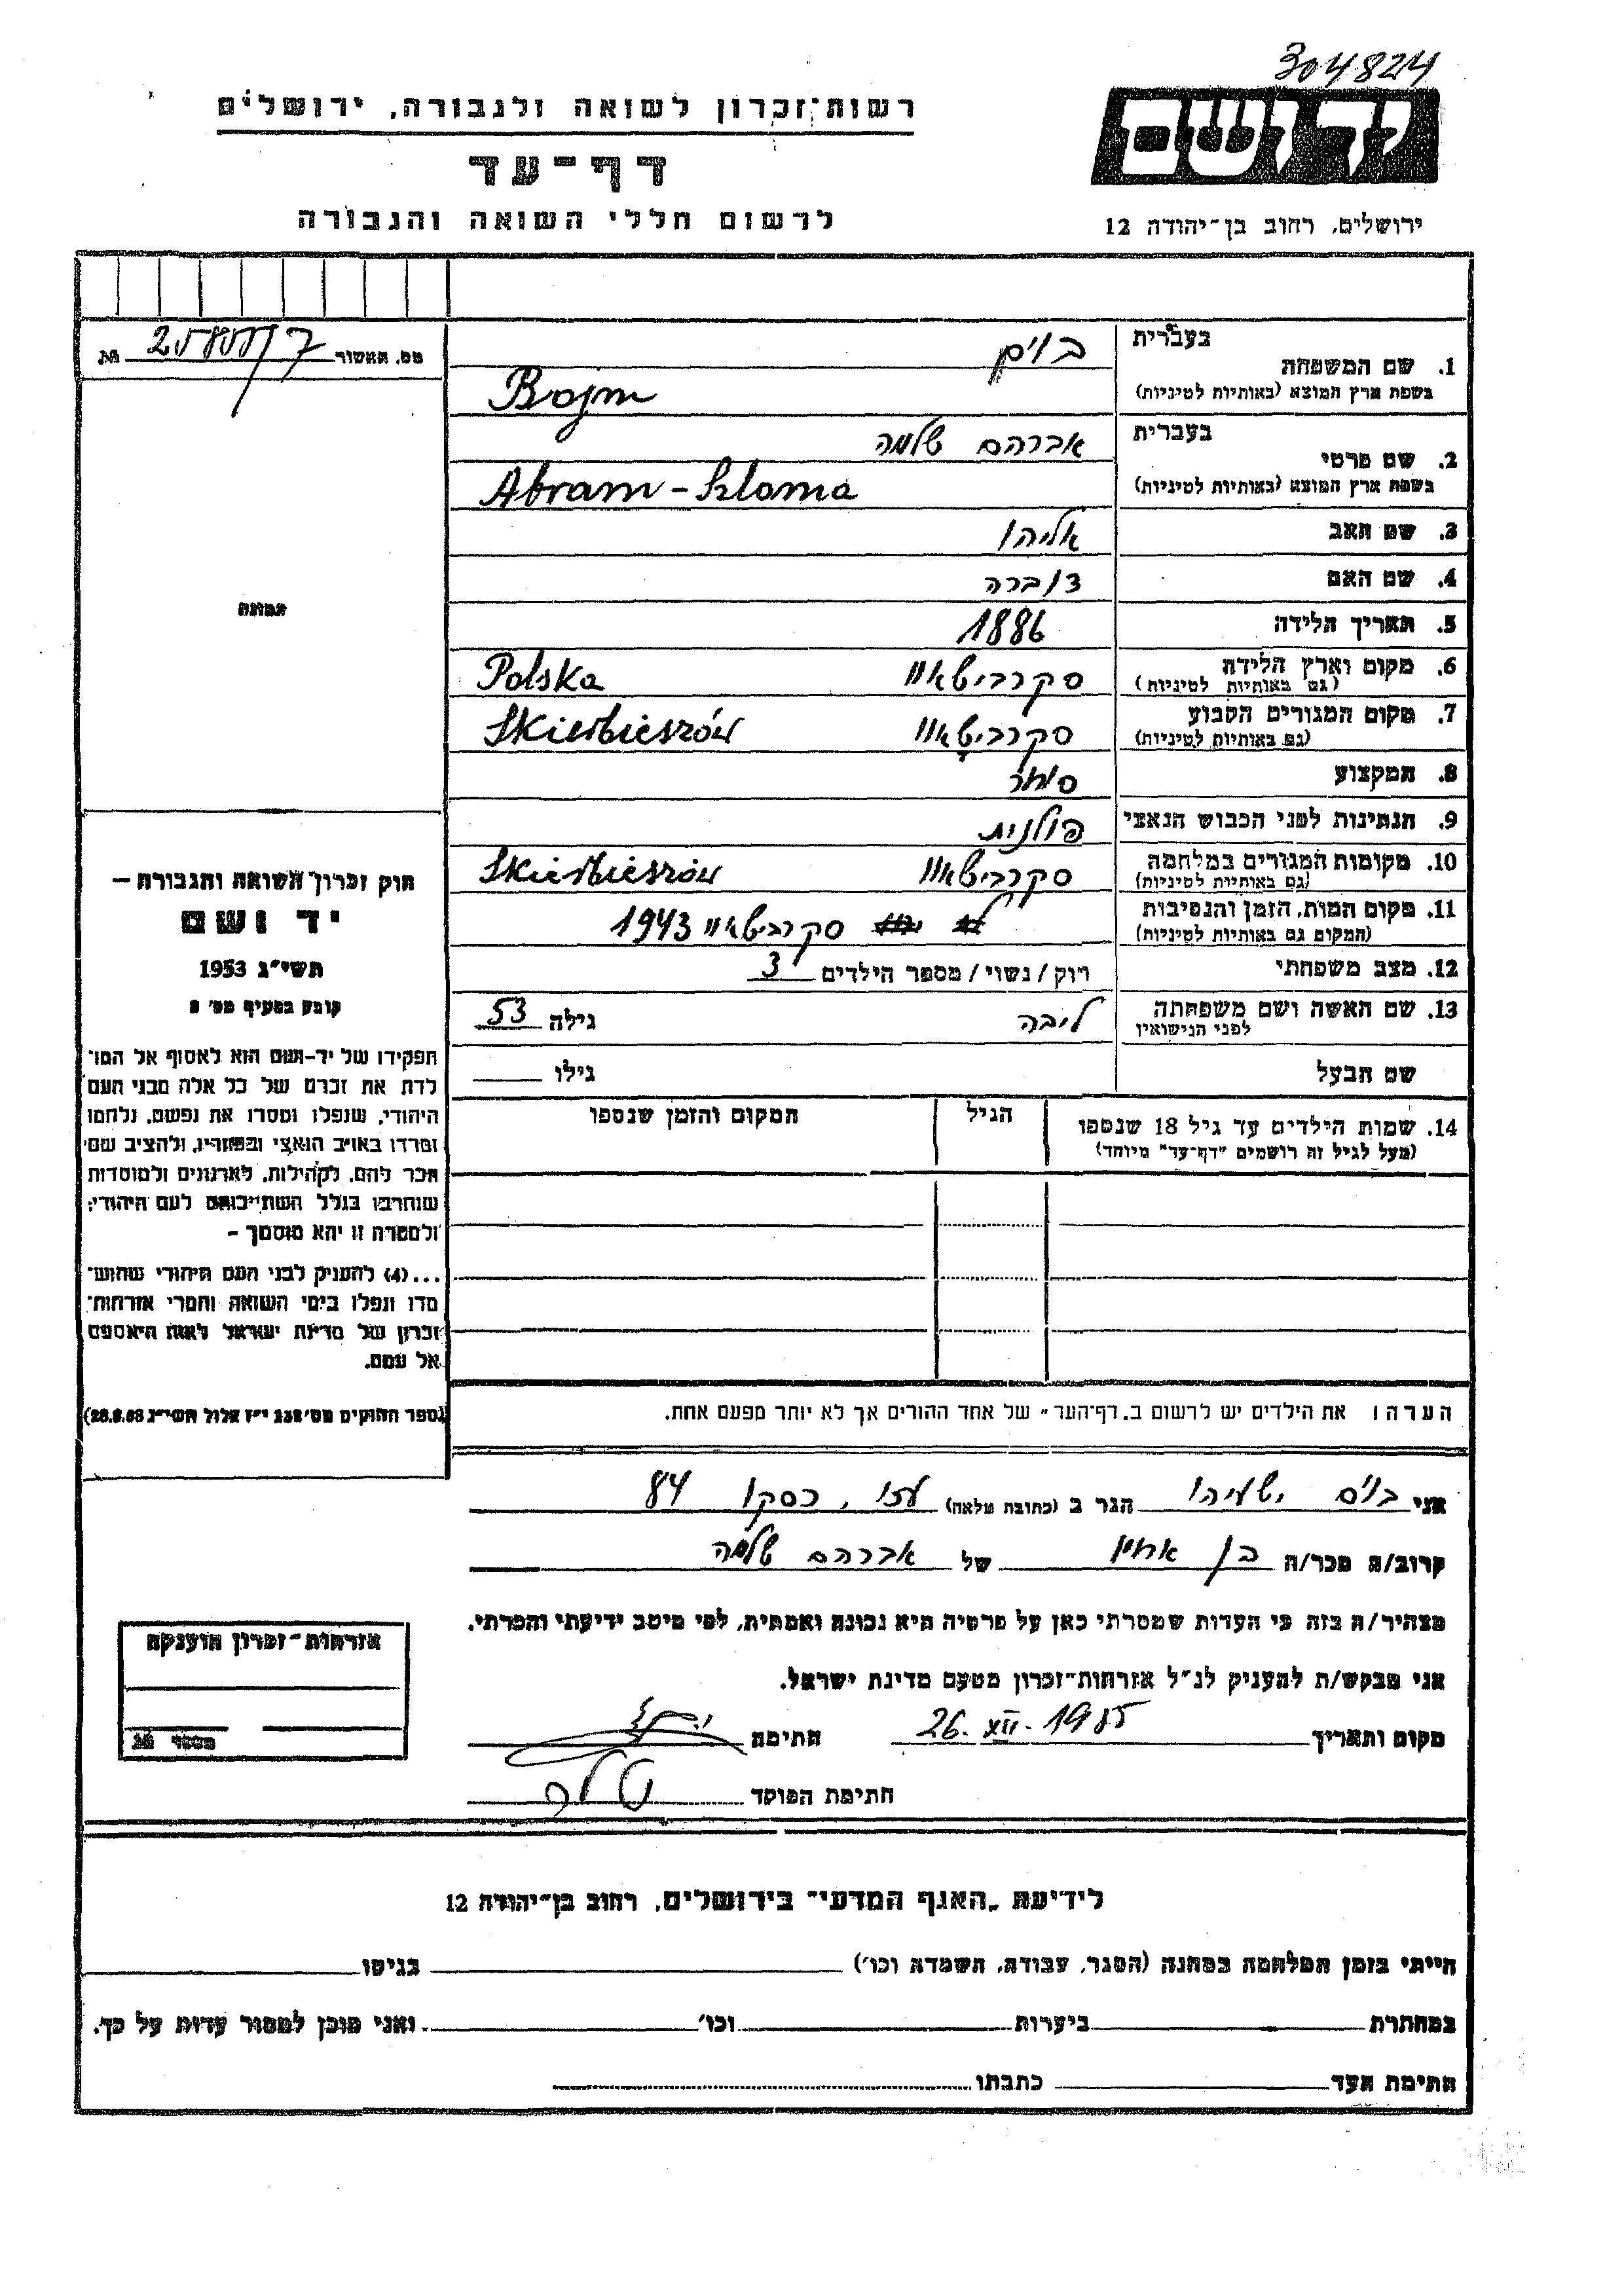 304824
יד ושם
רשות־זכרון לשואה ולגבורה, ירושלים
דף־עד
לרשום חללי השואה והגבורה
ירושלים, רחוב בן־יהודה 12
מס. האשור
1. שם המשפחה בעברית בוים
בשפת ארץ המוצא (באותיות לטיניות) Bojm
2. שם פרטי בעברית אברהם שלמה
בשפת ארץ המוצא (באותיות לטיניות) Abram-Szloma
3. שם האב אליהו
4. שם האם דוברה
5. תאריך הלידה 1886
6. מקום וארץ הלידה סקרבישאוו Polska
(גם באותיות לטיניות)
7. מקום המגורים הקבוע סקרבישאוו Skierbieszów
(גם באותיות לטיניות)
8. המקצוע סוחר
9. הנתינות לפני הכבוש הנאצי פולנית
10. מקומות המגורים במלחמה סקרבישאוו Skierbieszów
(גם באותיות לטיניות)
11. מקום המות, הזמן והנסיבות סקרבישאוו 1943
(המקום גם באותיות לטיניות)
12. מצב משפחתי רווק / נשוי / מספר הילדים 3
13. שם האשה ושם משפחתה ליבה גילה 53
לפני הנישואין
שם הבעל גילו
14. שמות הילדים עד גיל 18 שנספו הגיל המקום והזמן שנספו
(מעל לגיל זה רושמים "דף־עד" מיוחד)
תמונה
חוק זכרון השואה והגבורה –
יד ושם
תשי"ג 1953
קובע בסעיף מס'
תפקידו של יד־ושם הוא לאסוף אל המו־
לדת את זכרם של כל אלה מבני העם
היהודי, שנפלו ומסרו את נפשם, נלחמו
ומרדו באויב הנאצי ובעוזריו, ולהציב שם
וזכר להם, לקהילות, לארגונים ולמוסדות
שנחרבו בגלל השתייכותם לעם היהודי;
ולמטרה זו יהא מוסמך –
...(4) להעניק לבני העם היהודי שהוש־
מדו ונפלו בימי השואה והמרי אזרחות־
זכרון של מדינת ישראל לאות היאספם
אל עמם.
(ספר החוקים מס' 132 י"ז אלול תשי"ג 28.8.53)
הערה: את הילדים יש לרשום ב"דף־העד" של אחד ההורים אך לא יותר מפעם אחת.
אני בוים ישעיהו הגר ב (כתובת מלאה) 84
קרוב/ה מכר/ה בן אחיו של אברהם שלמה
מצהיר/ה בזה כי העדות שמסרתי כאן על פרטיה היא נכונה ואמתית, לפי מיטב ידיעתי והכרתי.
אני מבקש/ת להעניק לנ"ל אזרחות־זכרון מטעם מדינת ישראל.
מקום ותאריך 26.XII.1985 חתימה
חתימת הפוקד
אזרחות־זכרון הוענקה
מספר
לידיעת "האגף המדעי" בירושלים, רחוב בן־יהודה 12
הייתי בזמן המלחמה במחנה (הסגר, עבודה, השמדה וכו') בגיטו
במחתרת ביערות וכו' ואני מוכן למסור עדות על כך.
חתימת העד כתבתו